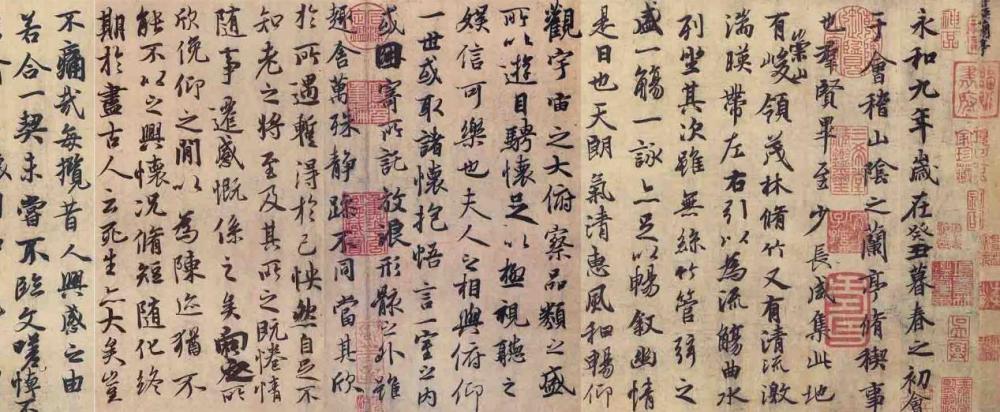 永和九年歲在癸丑暮春之初會
于會稽山陰之蘭亭脩稧事
也羣賢畢至少長咸集此地
有崇山峻領茂林脩竹又有清流激
湍暎帶左右引以為流觴曲水
列坐其次雖無絲竹管弦之
盛一觴一詠亦足以暢敘幽情
是日也天朗氣清惠風和暢仰
觀宇宙之大俯察品類之盛
所以遊目騁懷足以極視聽之
娛信可樂也夫人之相與俯仰
一世或取諸懷抱悟言一室之內
或因寄所託放浪形骸之外雖
趣舍萬殊靜躁不同當其欣
於所遇暫得於己怏然自足不
知老之將至及其所之既惓情
隨事遷感慨係之矣向之所
欣俛仰之閒以為陳迹猶不
能不以之興懷況脩短隨化終
期於盡古人云死生亦大矣豈
不痛哉每攬昔人興感之由
若合一契未嘗不臨文嗟悼不